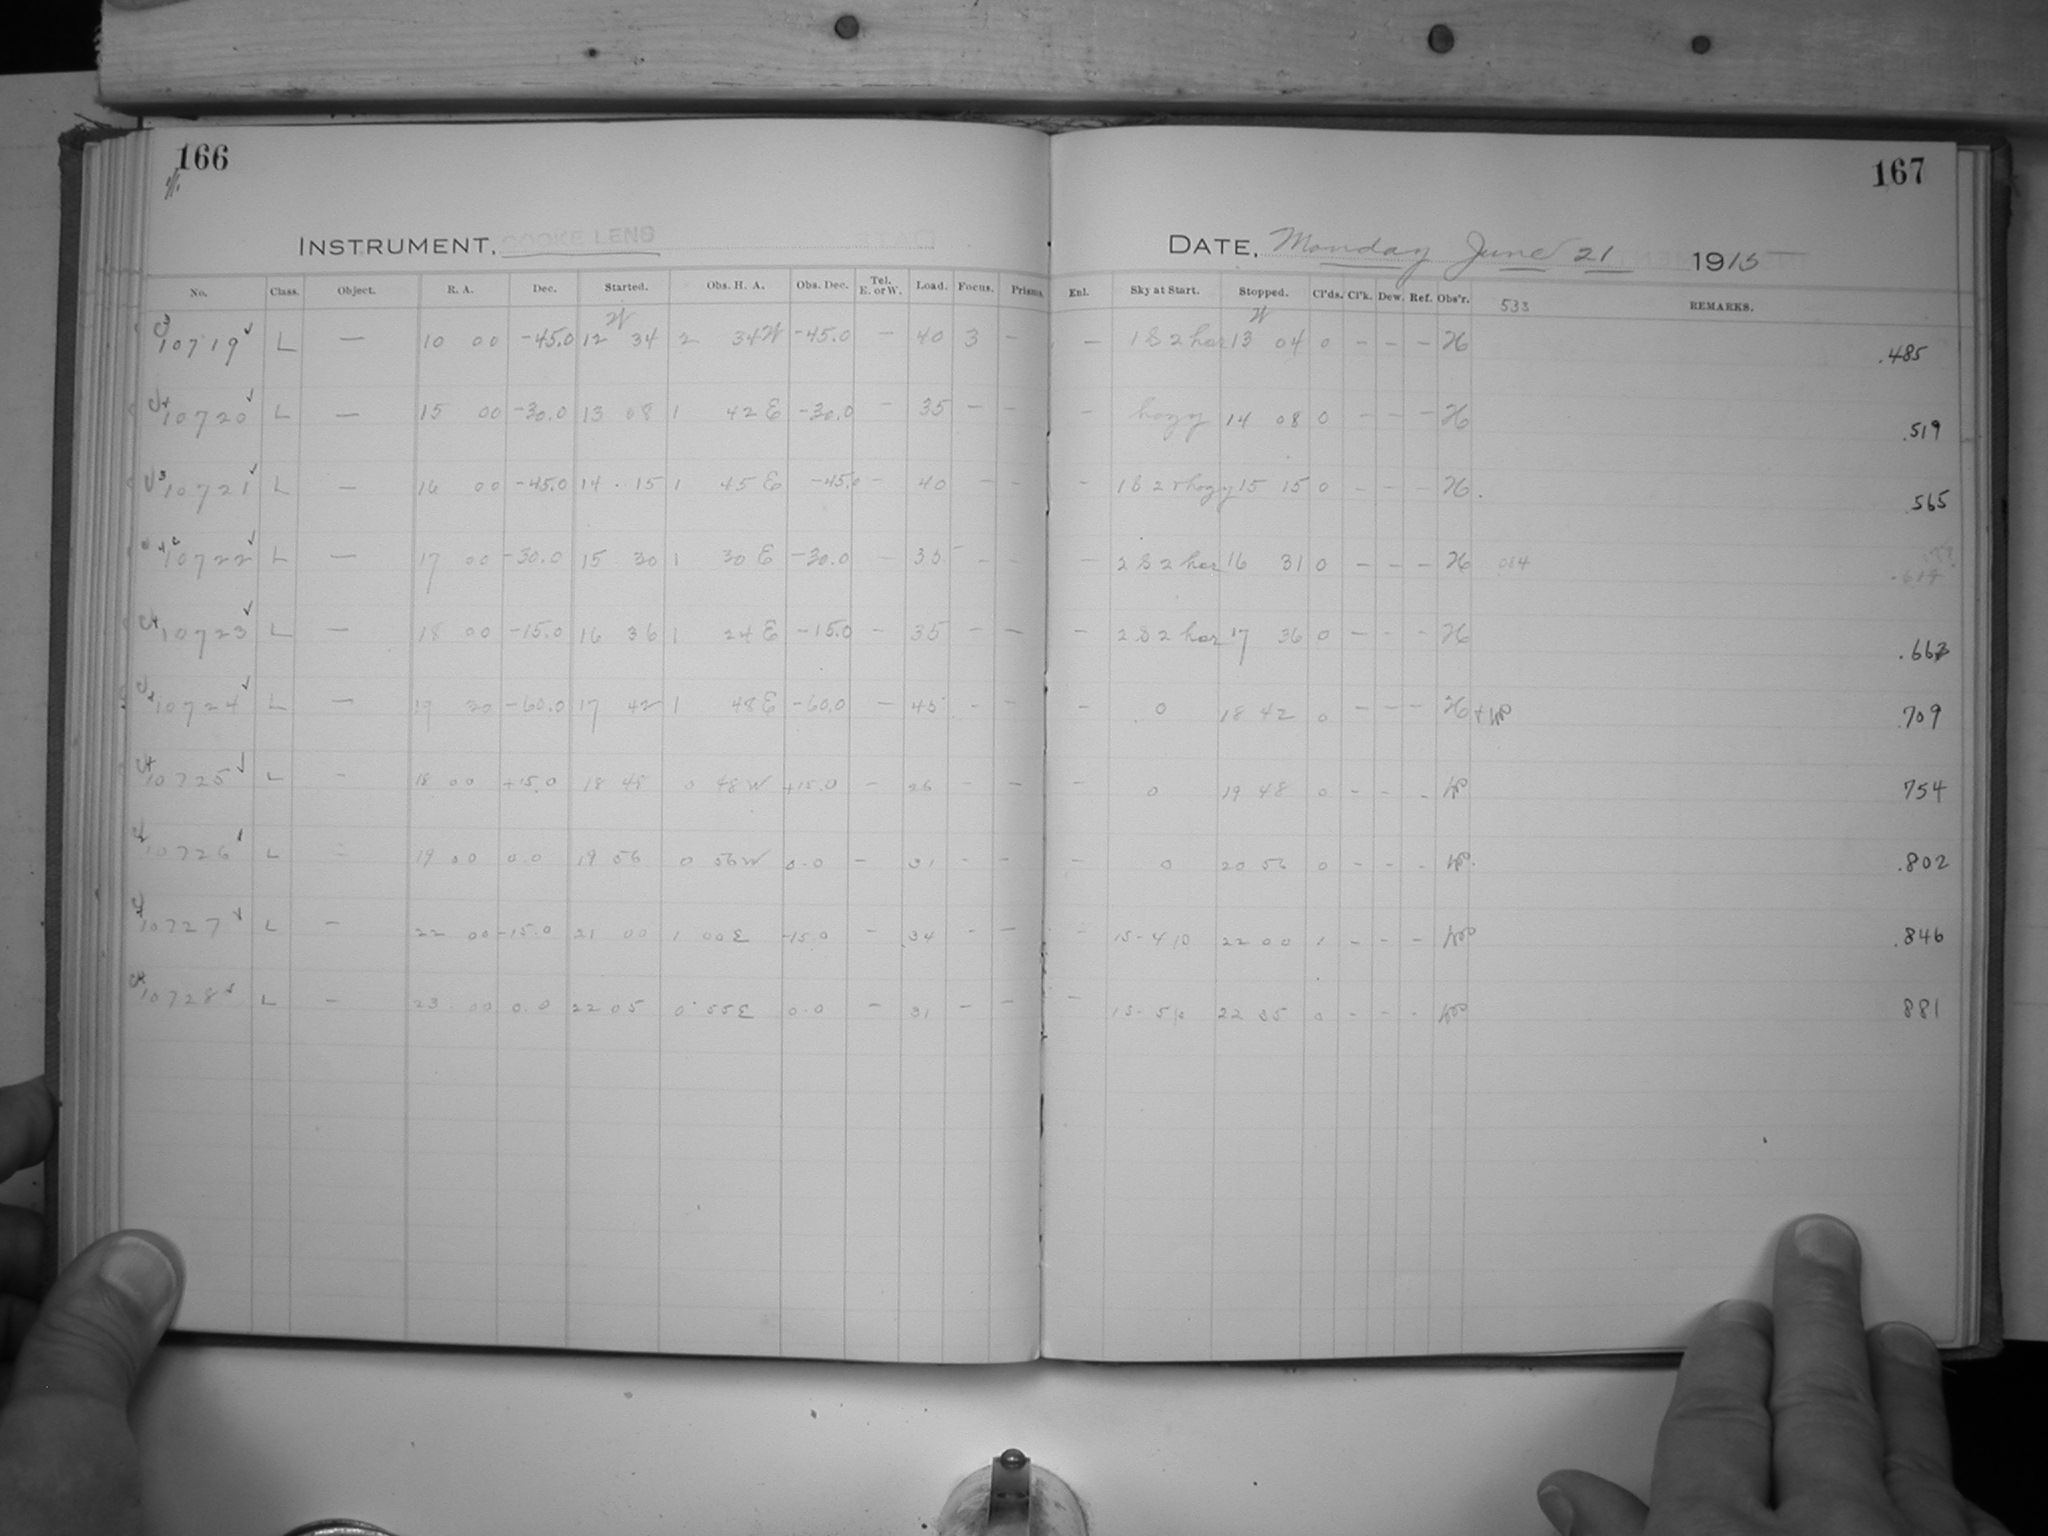 166
167
INSTRUMENT, COOKE LENS
DATE, Monday June 21 1915
No. Class. Object. R. A. Dec. Started. Obs. H. A. Obs. Dec. Tel. E. or W. Load. Focus. Prisms. Enl. Sky at Start. Stopped. Cl'ds. Cl'k. Dew. Ref. Obs'r. 533 REMARKS.
10719 L — 10 00 -45.0 12 34 2 34W -45.0 — 40 3 — — 1 S 2 haz 13 04 0 — — — H .485
10720 L — 15 00 -30.0 13 08 1 42 E -30.0 — 35 — — — hazy 14 08 0 — — — H .519
10721 L — 16 00 -45.0 14 15 1 45 E -45.0 — 40 — — — 15 15 0 — — — H .565
10722 L — 17 00 -30.0 15 30 1 30 E -30.0 — 35 — — — 2 S 2 haz 16 31 0 — — — H 064
10723 L — 18 00 -15.0 16 36 1 24 E -15.0 — 35 — — — 2 S 2 haz 17 36 0 — — — H .663
10724 L — 19 30 -60.0 17 42 1 48 E -60.0 — 45 — — — 0 18 42 0 — — — H .709
10725 L — 18 00 +15.0 18 48 0 48 W +15.0 — 26 — — — 0 19 48 0 — — — 754
10726 L — 19 00 0.0 19 56 0 56 W 0.0 — 31 — — — 0 20 56 0 — — — .802
10727 L — 22 00 -15.0 21 00 1 00 E -15.0 — 34 — — — 22 00 1 — — — .846
10728 L — 23 00 0.0 22 05 0 55 E 0.0 — 31 — — — 22 35 0 — — — 881